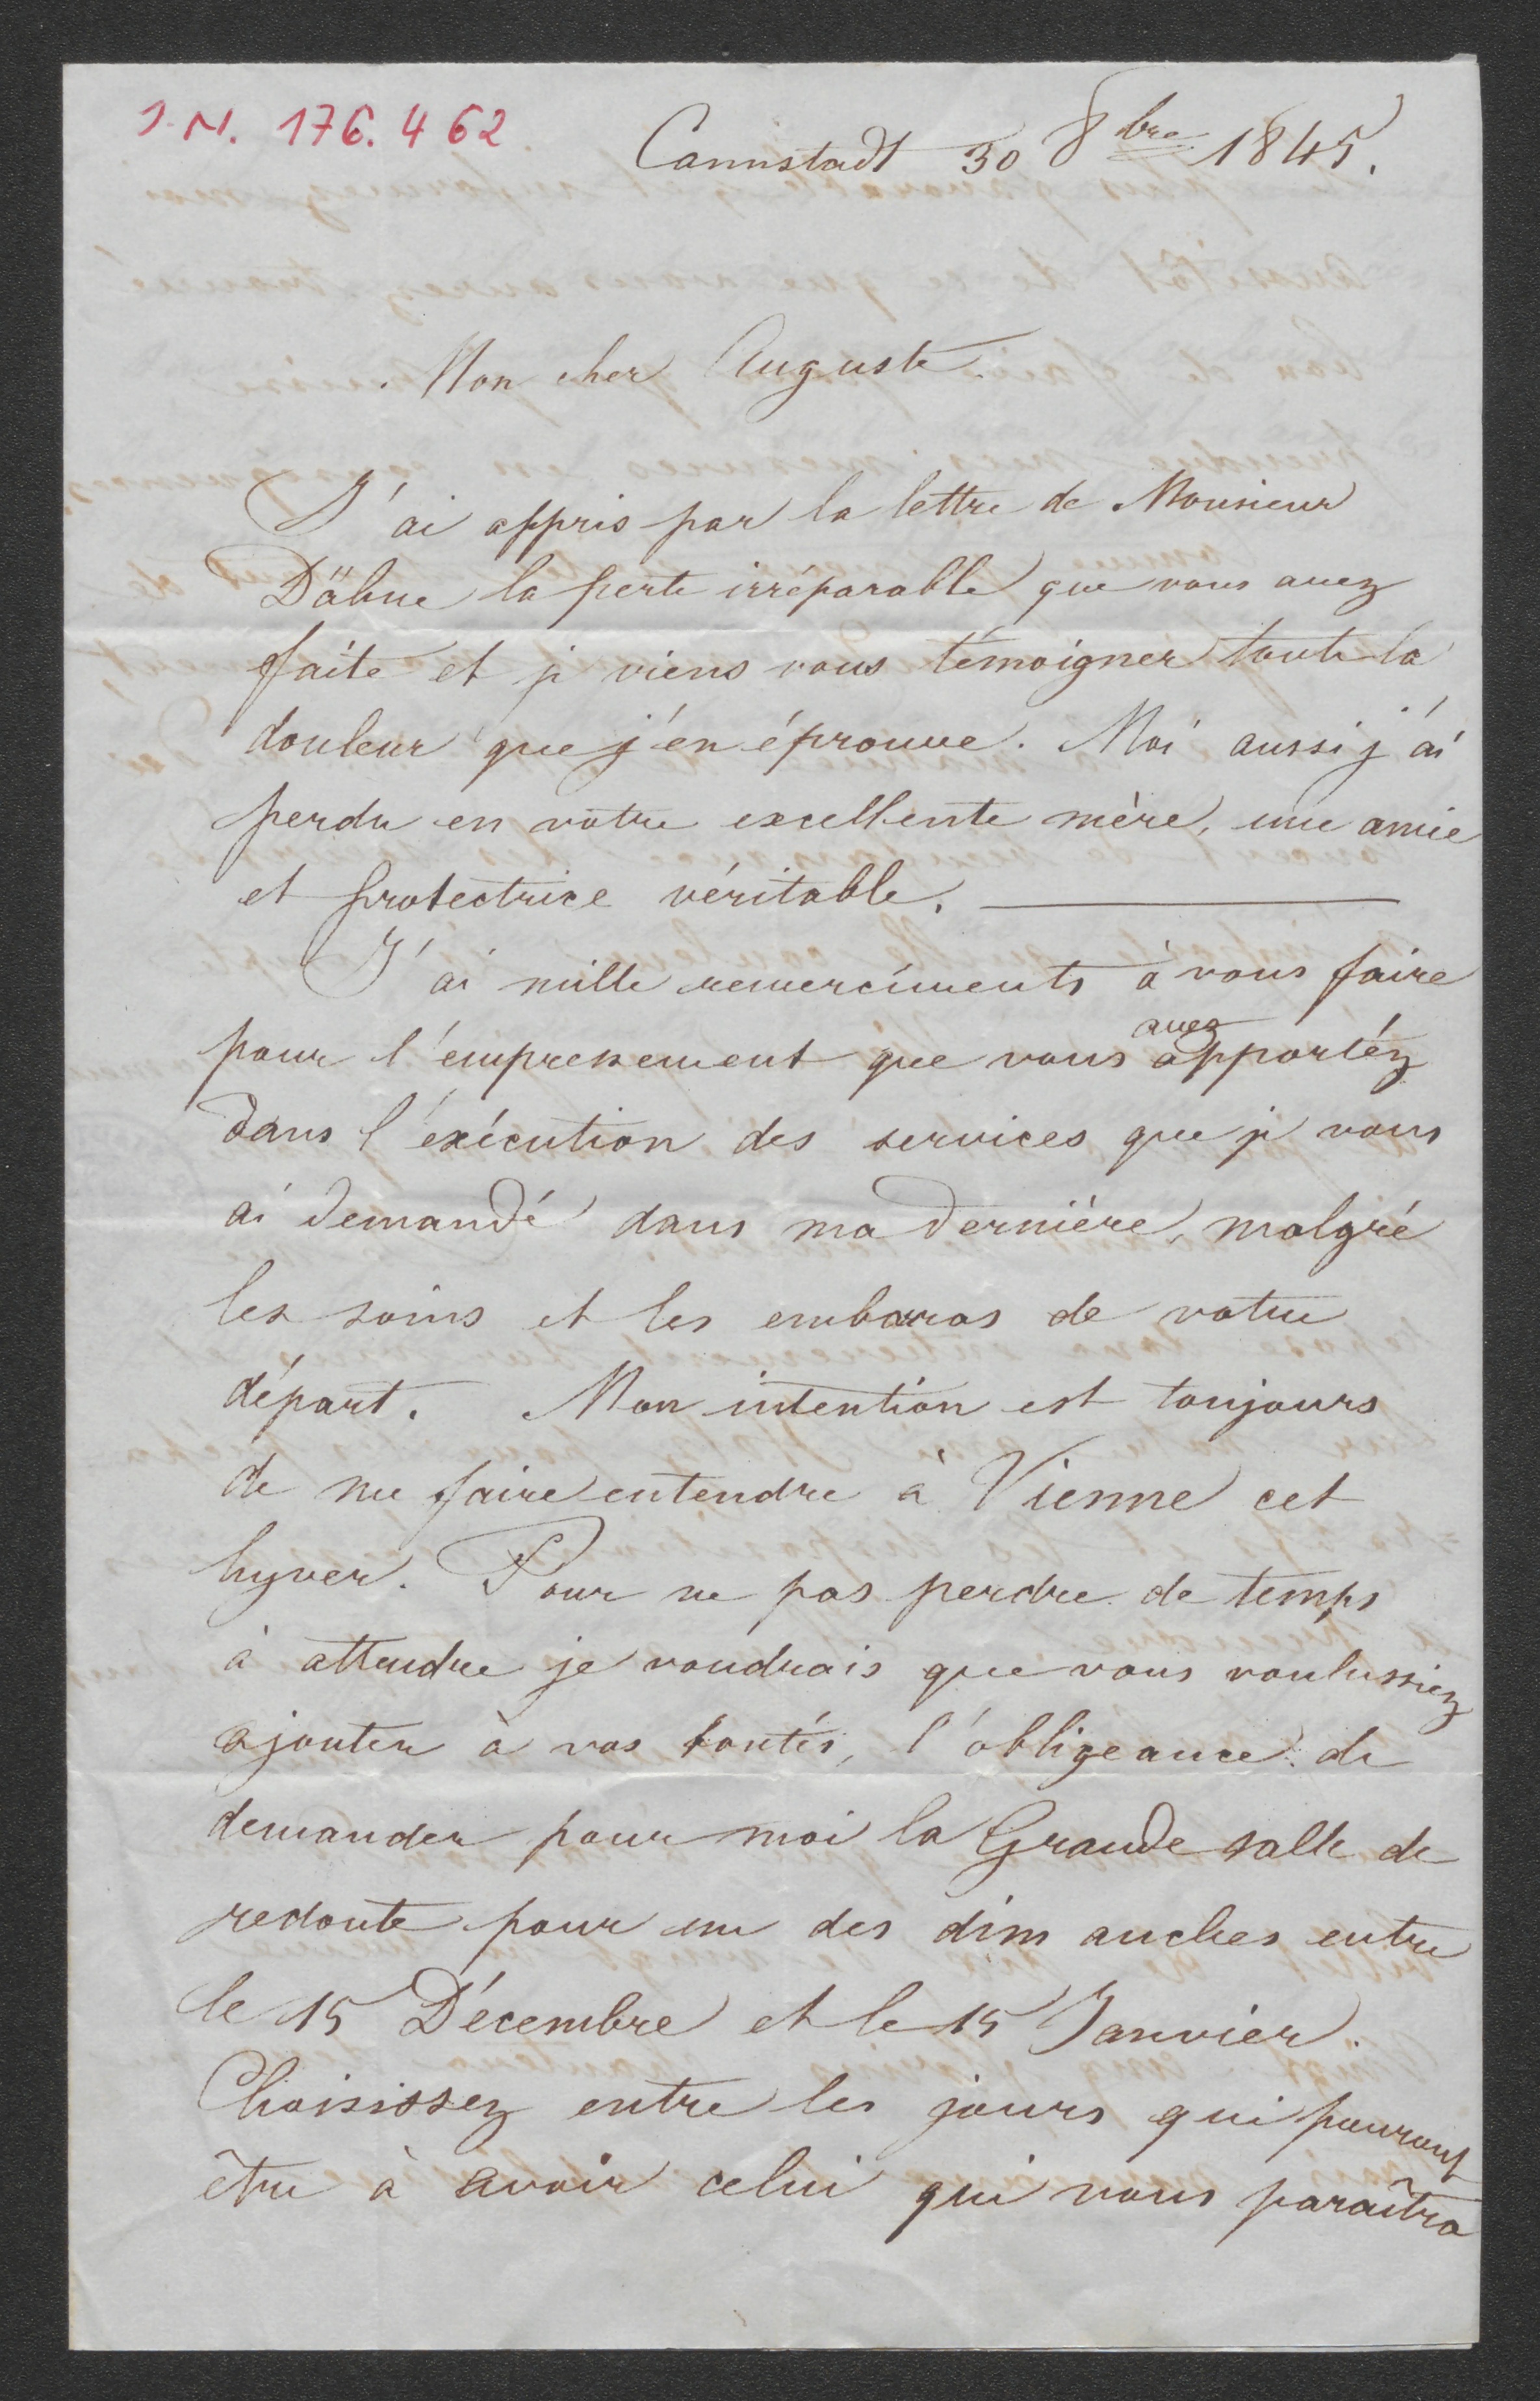 J.N. 176.462
Cannstadt 30 8bre 1845.
Mon cher Auguste.
J'ai appris par la lettre de Monsieur
Dähne la perte irréparable que vous avez
faite et je viens vous témoigner toute la
douleur que j'en éprouve. Moi aussi j'ai
perdu en votre excellente mère, une amie
et protectrice véritable. ———
J'ai mille remercîments à vous faire
avez
pour l'empressement que vous apportéz
dans l'exécution des services que je vous
ai demandé dans ma dernière, malgré
les soins et les embarras de votre
départ. Mon intention est toujours
de me faire entendre à Vienne cet
hyver. Pour ne pas perdre de temps
à attendre je voudrais que vous voulussiez
ajouter à vos bontés, l'obligeance de
demander pour moi la Grande salle de
redoute pour un des dimanches entre
le 15 Décembre et le 15 Janvier.
Choisissez entre les jours qui pouront
être à avoir celui qui vous paraîtra